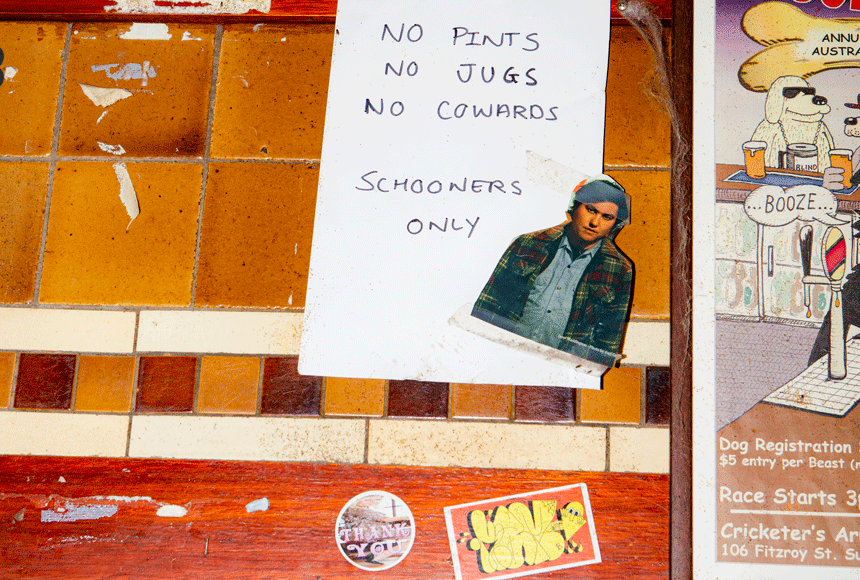 NO PINTS
NO JUGS
NO COWARDS
SCHOONERS
ONLY
THANK
YOU
ANNU
AUSTRA
BLIND
..BOOZE...
Dog Registration
$5 entry per Beast
Race Starts
Cricketer's Ar
106 Fitzroy St. Su